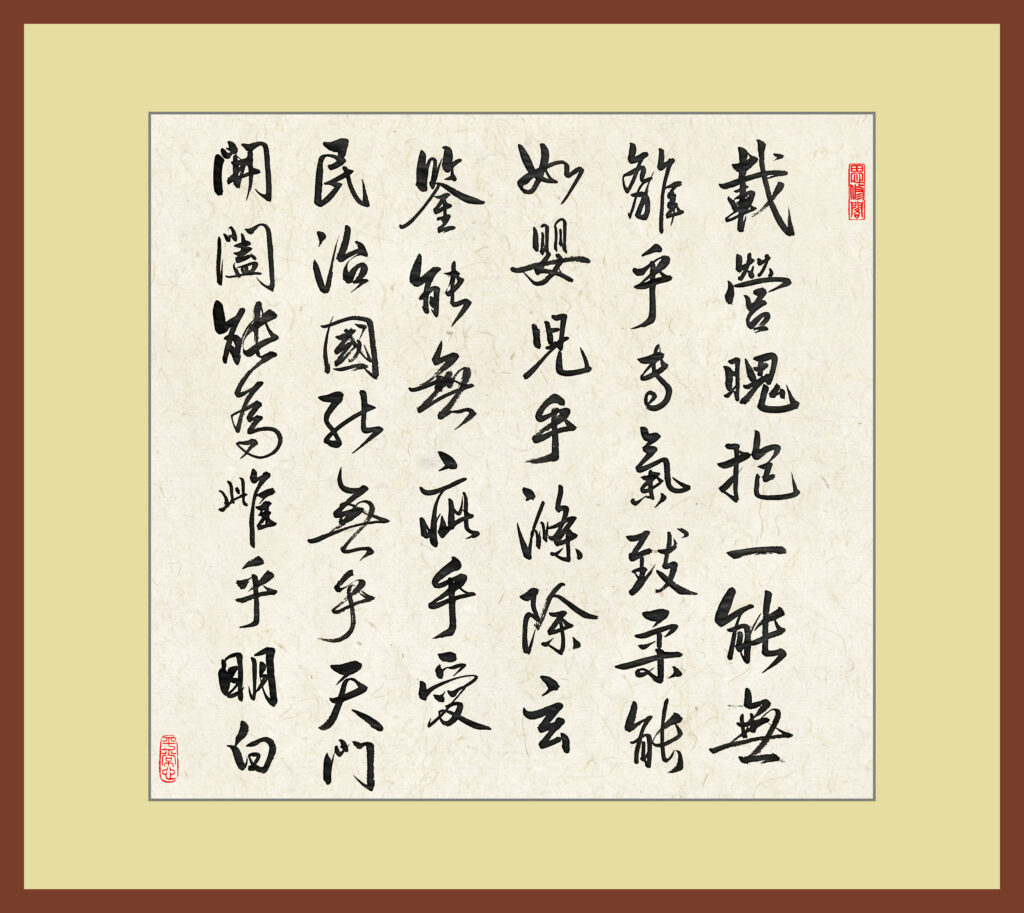 思修閣
載營魄抱一能無
離乎專氣致柔能
如嬰兒乎滌除玄
鑒能無疵乎愛
民治國能無乎天門
開闔能為雌乎明白
平常心